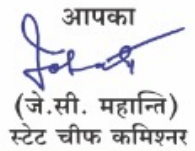 आपका
(जे.सी. महान्ति)
स्टेट चीफ कमिश्नर